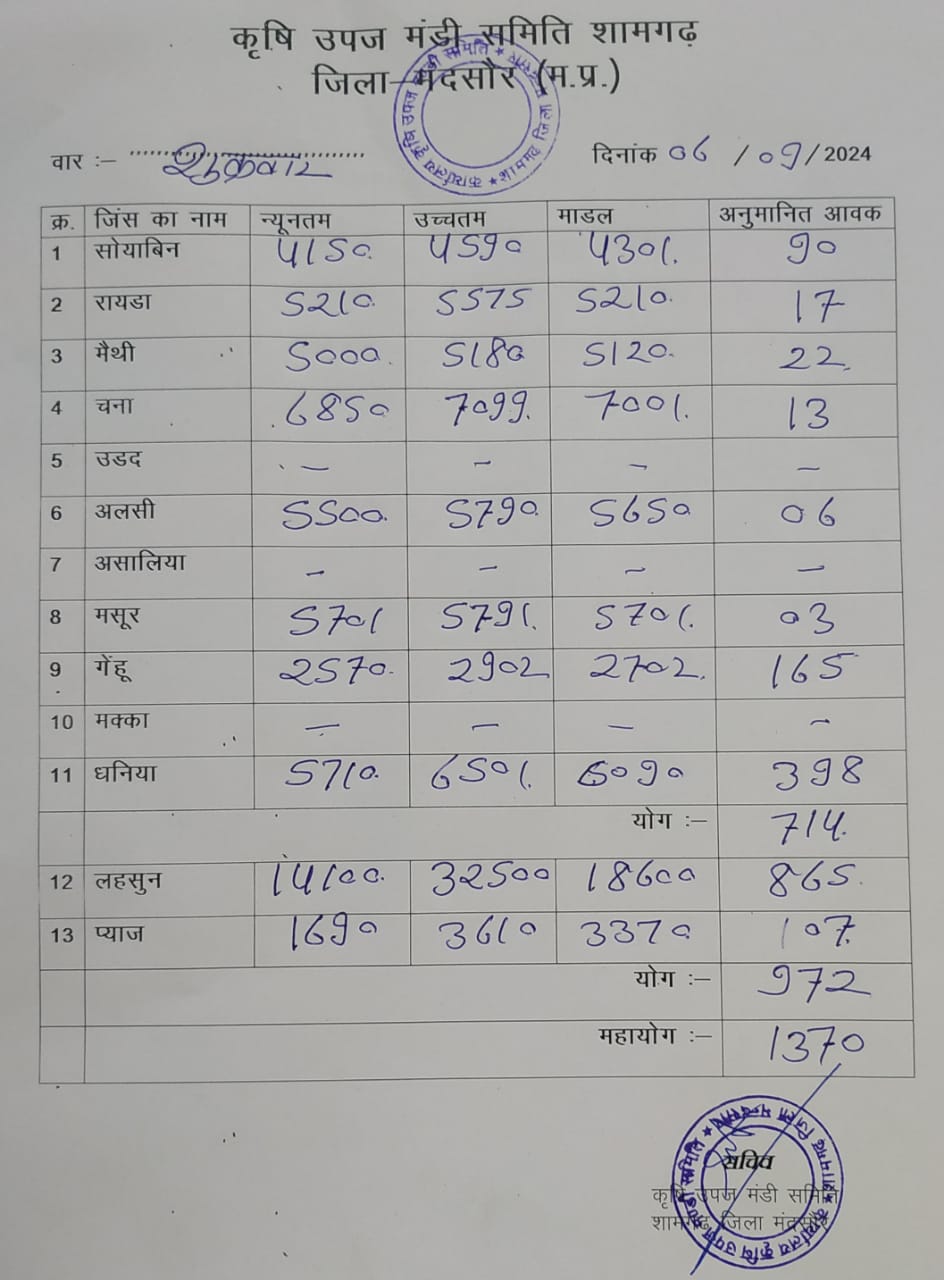 कृषि उपज मंडी समिति शामगढ़
जिला–मंदसौर (म.प्र.)
वार :– शुक्रवार
दिनांक 06 / 09 / 2024
क्र. जिंस का नाम न्यूनतम उच्चतम माडल अनुमानित आवक
1 सोयाबिन 4150 4590 4301 90
2 रायडा 5210 5575 5210 17
3 मैथी 5000 5180 5120 22
4 चना 6850 7099 7001 13
5 उडद – – – –
6 अलसी 5500 5790 5650 06
7 असालिया – – – –
8 मसूर 5701 5791 5701 03
9 गेंहू 2570 2902 2702 165
10 मक्का – – – –
11 धनिया 5710 6501 6090 398
योग :– 714
12 लहसुन 14100 32500 18600 865
13 प्याज 1690 3610 3370 107
योग :– 972
महायोग :– 1370
सचिव
कृषि उपज मंडी समिति
शामगढ़ जिला मंदसौर